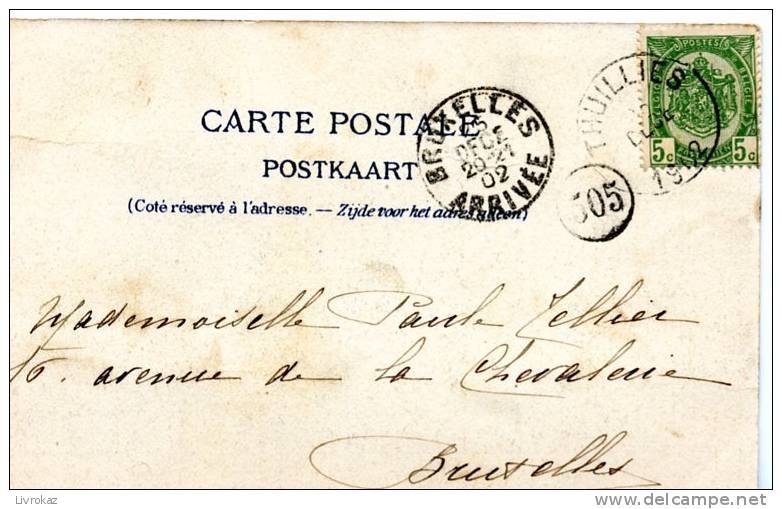 CARTE POSTALE
POSTKAART
(Coté réservé à l'adresse. — Zijde voor het adres alleen)
BRUXELLES
5
DEC
20-21
02
ARRIVÉE
THUILLIES
DEC
1902
505
POSTES
5c 5c
Mademoiselle Paule Tellier
16. avenue de la Chevalerie
Bruxelles
Livrokaz
delcampe.net